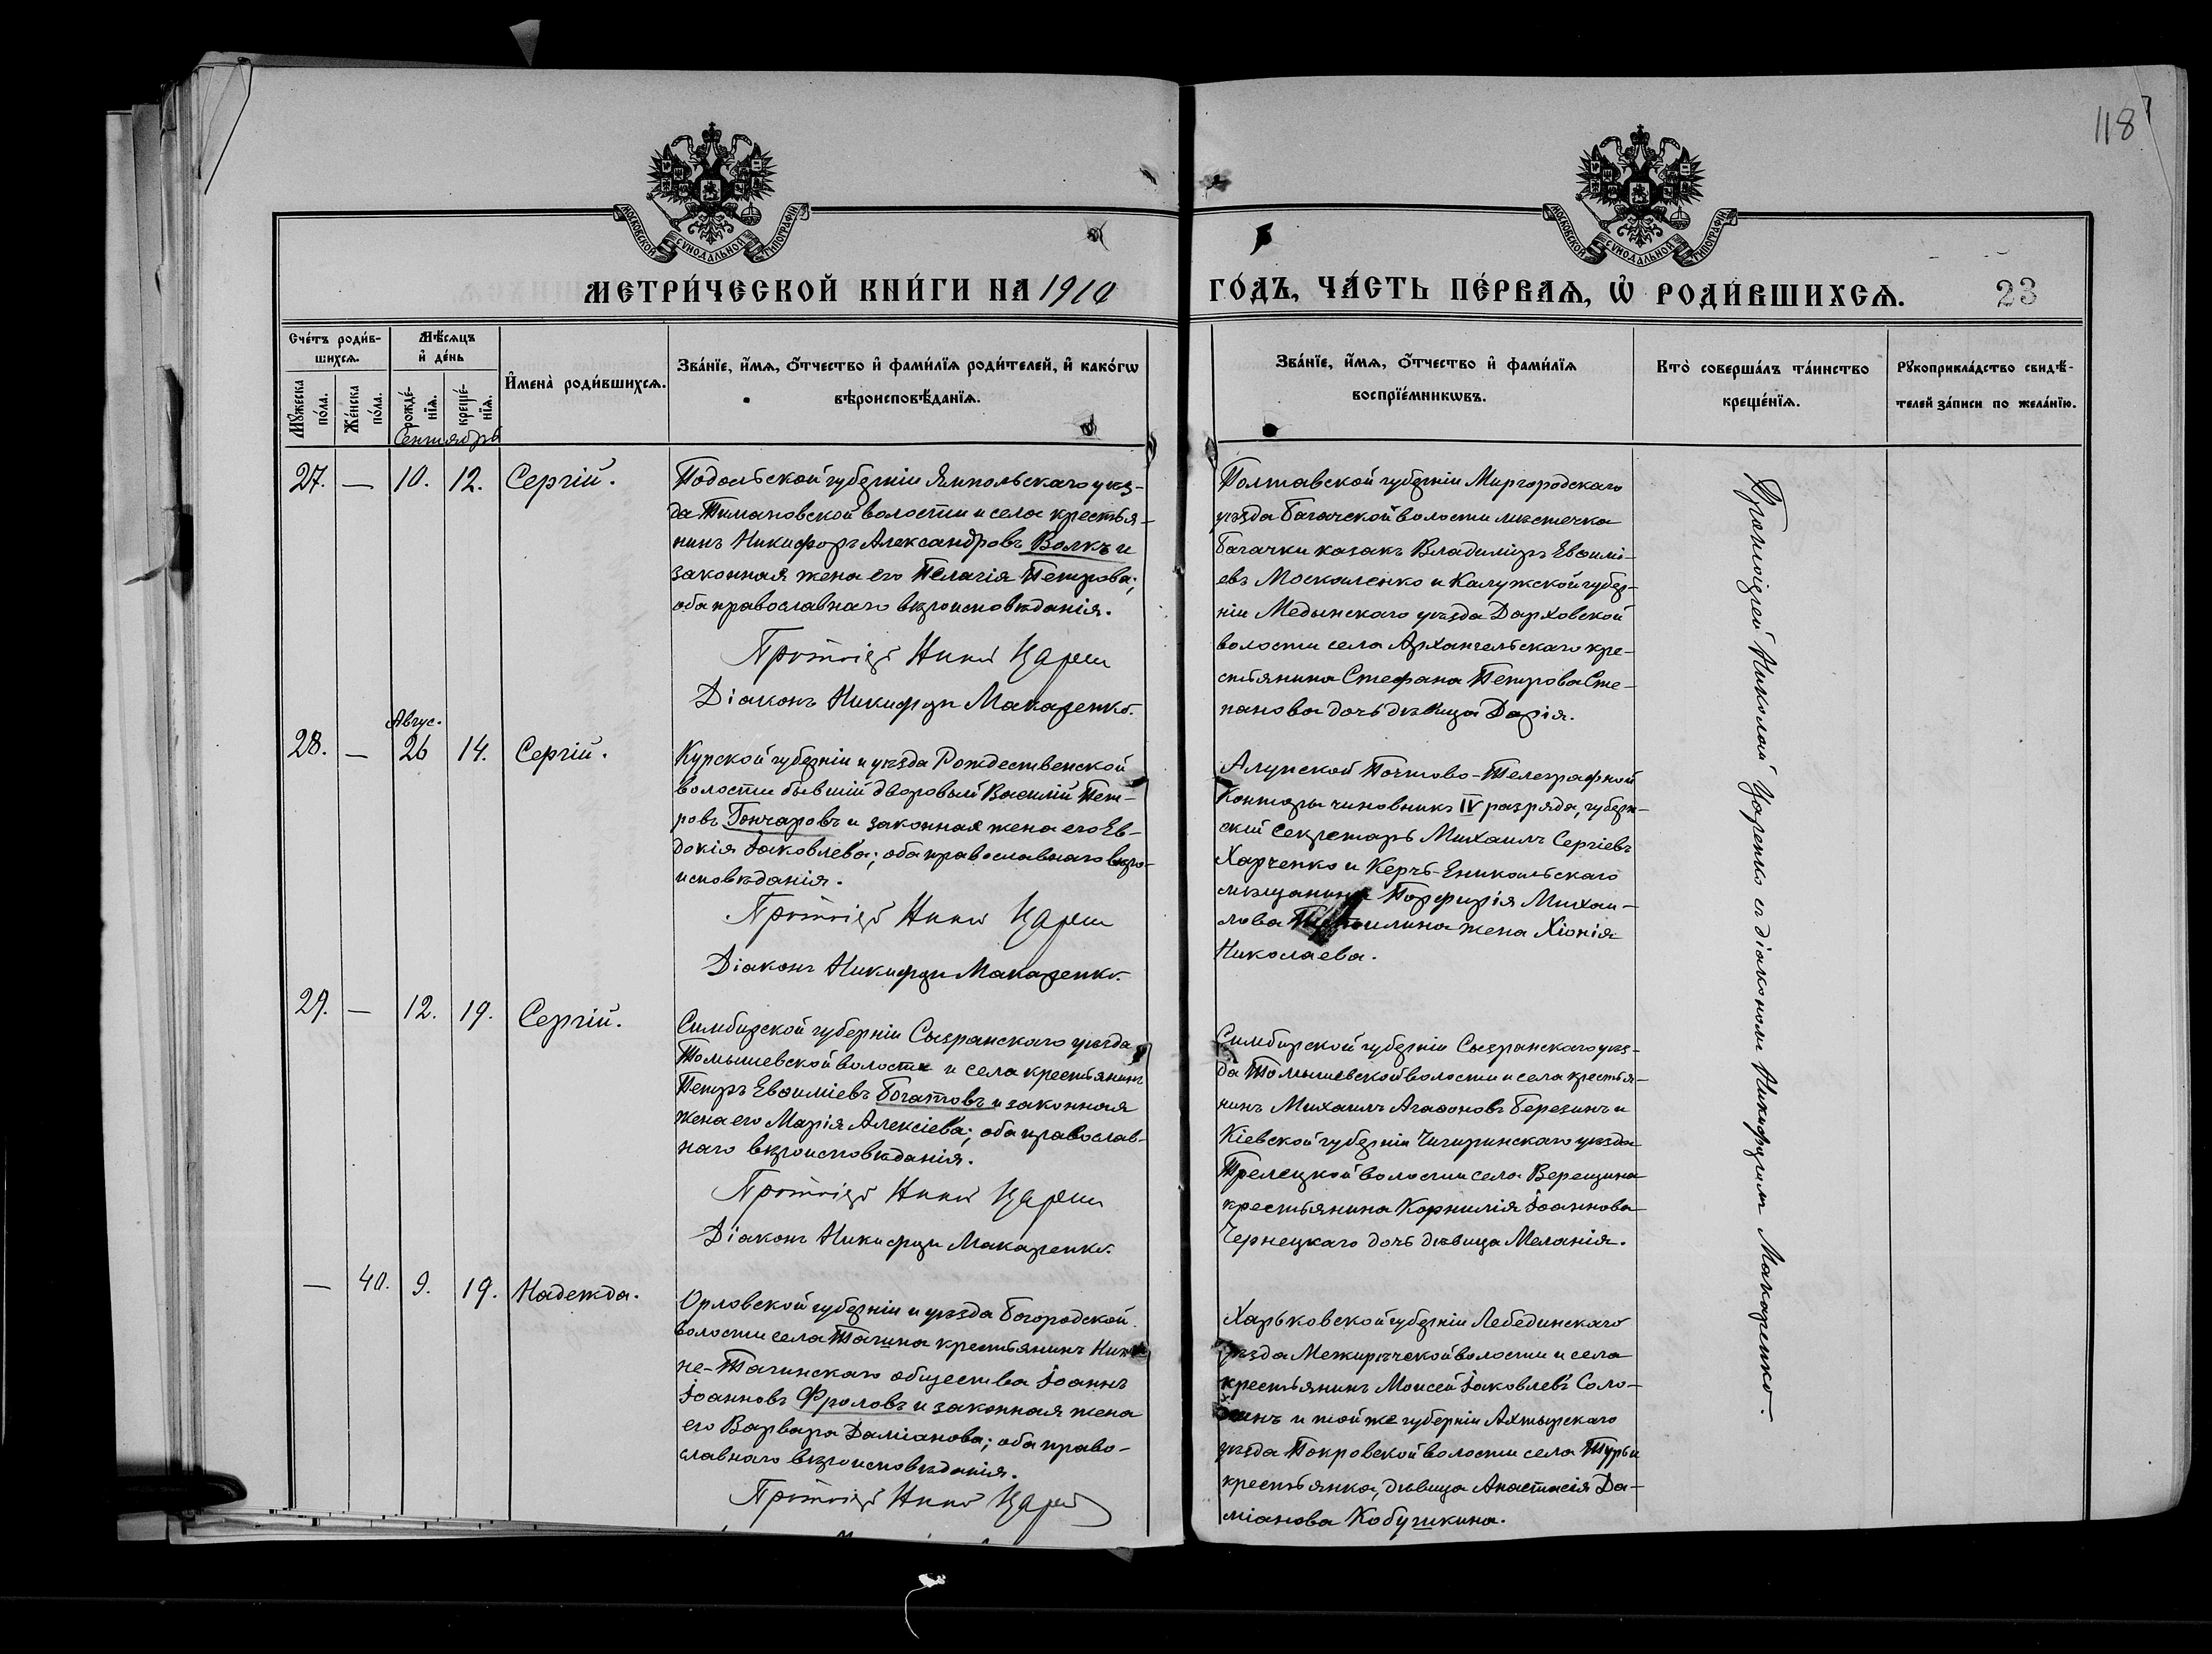 118
МОСКОВСКОЙ СѴНОДАЛЬНОЙ ТИПОГРАФІИ
МОСКОВСКОЙ СѴНОДАЛЬНОЙ ТИПОГРАФІИ
МЕТРИ́ЧЕСКОЙ КНИ́ГИ НА 1910
ГО́ДЪ, ЧА́СТЬ ПЕ́РВАѦ, Ѡ҆ РОДИ́ВШИХСѦ.
23
Сче́тъ роди́в-
шихсѧ.
Мꙋ́жеска
по́ла.
Же́нска
по́ла.
Мѣ́сѧцъ
и҆ де́нь
рожде́-
нїѧ.
креще́-
нїѧ.
Сентябрь
И҆мена̀ роди́вшихсѧ.
Зва́нїе, и҆́мѧ, ѻ҆́тчество и҆ фами́лїѧ роди́телей, и҆ како́гѡ
вѣроисповѣ́данїѧ.
Зва́нїе, и҆́мѧ, ѻ҆́тчество и҆ фами́лїѧ
воспрїе́мникѡвъ.
Кто̀ соверша́лъ та́инство
креще́нїѧ.
Рꙋкоприкла́дство свидѣ́-
телей за́писи по жела́нїю.
27. — 10. 12. Сергій.
Подольской губерніи Ямпольскаго уѣз-
да Тимановской волости и села крестья-
нинъ Никифоръ Александровъ Волкъ и
законная жена его Пелагія Петрова;
оба православнаго вѣроисповѣданія.
Протоіер Никол Царен
Діаконъ Никифоръ Макаренко.
Полтавской губерніи Миргородскаго
уѣзда Багачской волости мѣстечка
Багачки казакъ Владиміръ Евѳимі-
евъ Москаленко и Калужской губер-
ніи Медынскаго уѣзда Дарховской
волости села Архангельскаго кре-
стьянина Стефана Петрова Сте-
панова дочь дѣвица Дарія.
Протоіерей Николай Царенко съ діакономъ Никифоромъ Макаренко.
Авгус.
28. — 26 14. Сергій.
Курской губерніи и уѣзда Рождественской
волости бывшій дворовый Василій Пет-
ровъ Гончаровъ и законная жена его Ев-
докія Іаковлева; оба православнаго вѣро-
исповѣданія.
Протоіер Никол Царен
Діаконъ Никифоръ Макаренко.
Алупской Почтово-Телеграфной
Конторы чиновникъ IV разряда, губерн-
скій Секретарь Михаилъ Сергіевъ
Харченко и Керчь-Еникольскаго
мѣщанина Порфирія Михаи-
лова жена Хіонія
Николаева.
29. — 12. 19. Сергій.
Симбирской губерніи Сызранскаго уѣзда
Томышевской волости и села крестьянинъ
Петръ Евѳиміевъ Богатовъ и законная
жена его Марія Алексіева; оба православ-
наго вѣроисповѣданія.
Протоіер Никол Царен
Діаконъ Никифоръ Макаренко.
Симбирской губерніи Сызранскаго уѣз-
да Томышевской волости и села крестья-
нинъ Михаилъ Агаѳоновъ Березинъ и
Кіевской губерніи Чигиринскаго уѣзда
Трелецкой волости села Верещина
крестьянина Корнилія Іоаннова
Чернецкаго дочь дѣвица Меланія.
— 40. 9. 19. Надежда.
Орловской губерніи и уѣзда Богородской
волости села Тагина крестьянинъ Ниж-
не-Тагинскаго общества Іоаннъ
Іоанновъ Фроловъ и законная жена
его Варвара Даміанова; оба право-
славнаго вѣроисповѣданія.
Протоіер Никол Царен
Харьковской губерніи Лебединскаго
уѣзда Межиричской волости и села
крестьянинъ Моисей Іаковлевъ Соло-
и той же губерніи Ахтырскаго
уѣзда Покровской волости села Турьи
крестьянка, дѣвица Анастасія Да-
міанова Кобушкина.